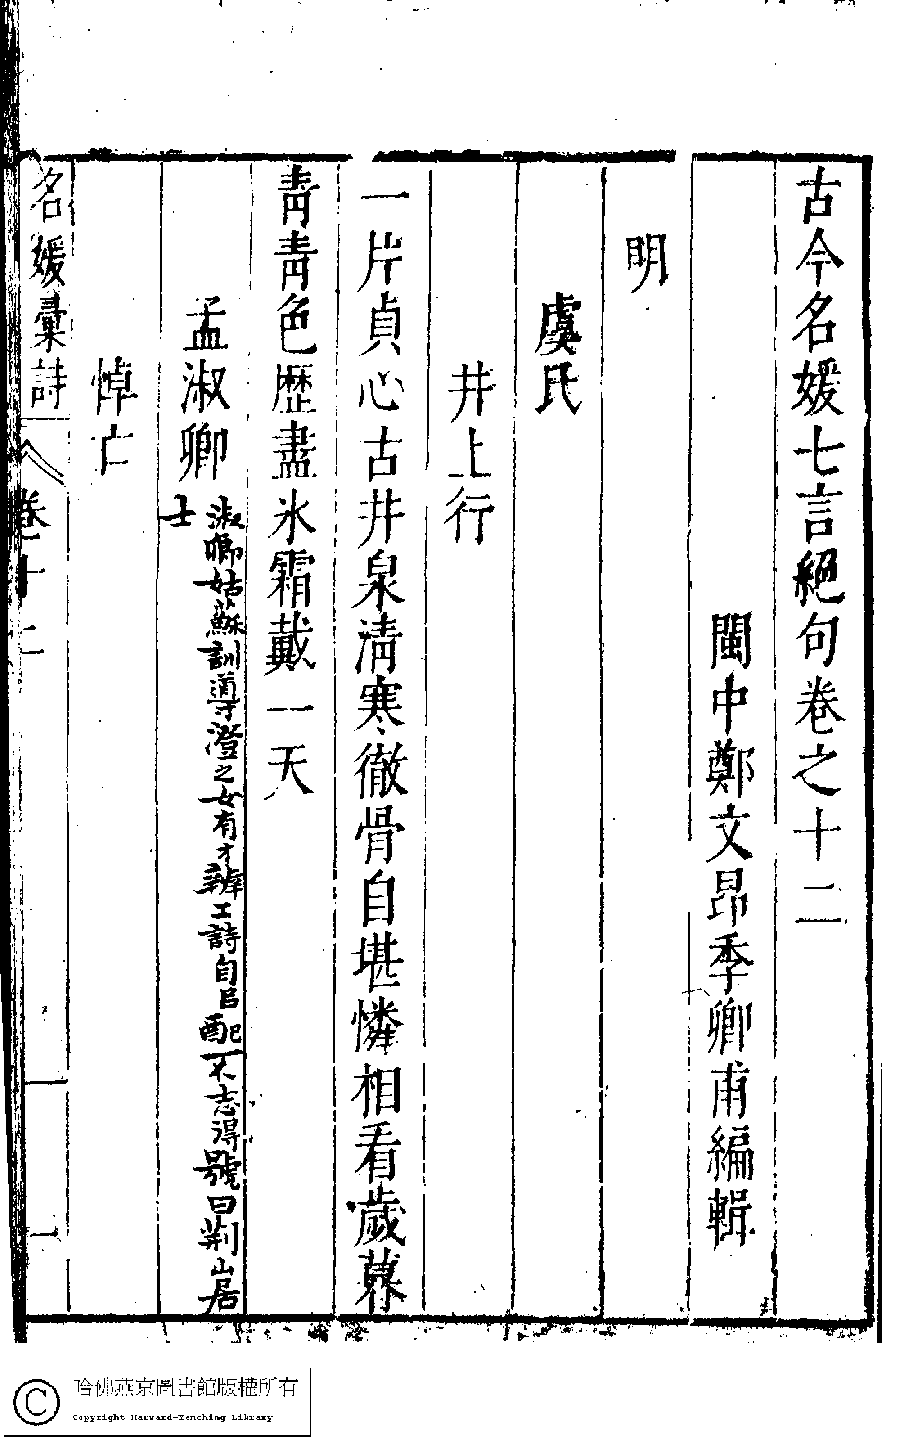 古今名媛七言絕句卷之十二
閩中鄭文昂季卿甫編輯
明
虞氏
井上行
一片貞心古井泉淸寒徹骨自堪憐相看歲暮
靑靑色歷盡氷霜戴一天
孟淑卿
淑卿姑蘇訓導澄之女有才辨工詩自㠯配不志得號曰荆山居
士
悼亡
名媛彙詩
卷十二
一
哈佛燕京圖書館版權所有
Copyright Harvard-Yenching Library